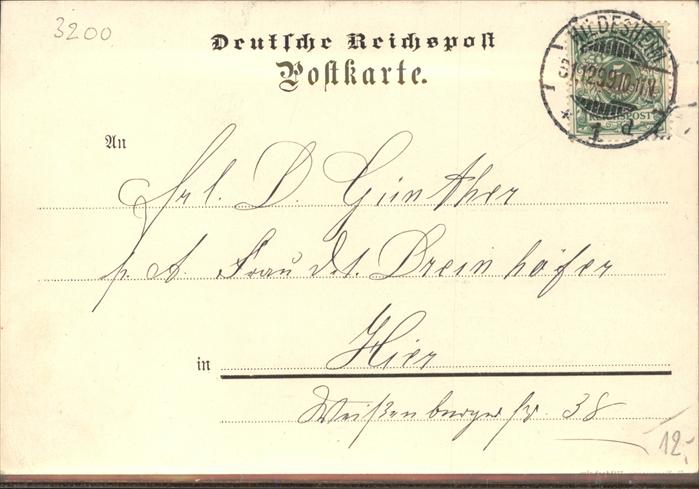 3200
Deutsche Reichspost
Postkarte.
HILDESHEIM
31.12.99.10-11V.
* 1 d
REICHSPOST
An
Frl. D. Günther
p. A. Frau Dr. Dreinhöfer
in Hier
Weißenburgerstr. 38
12,-